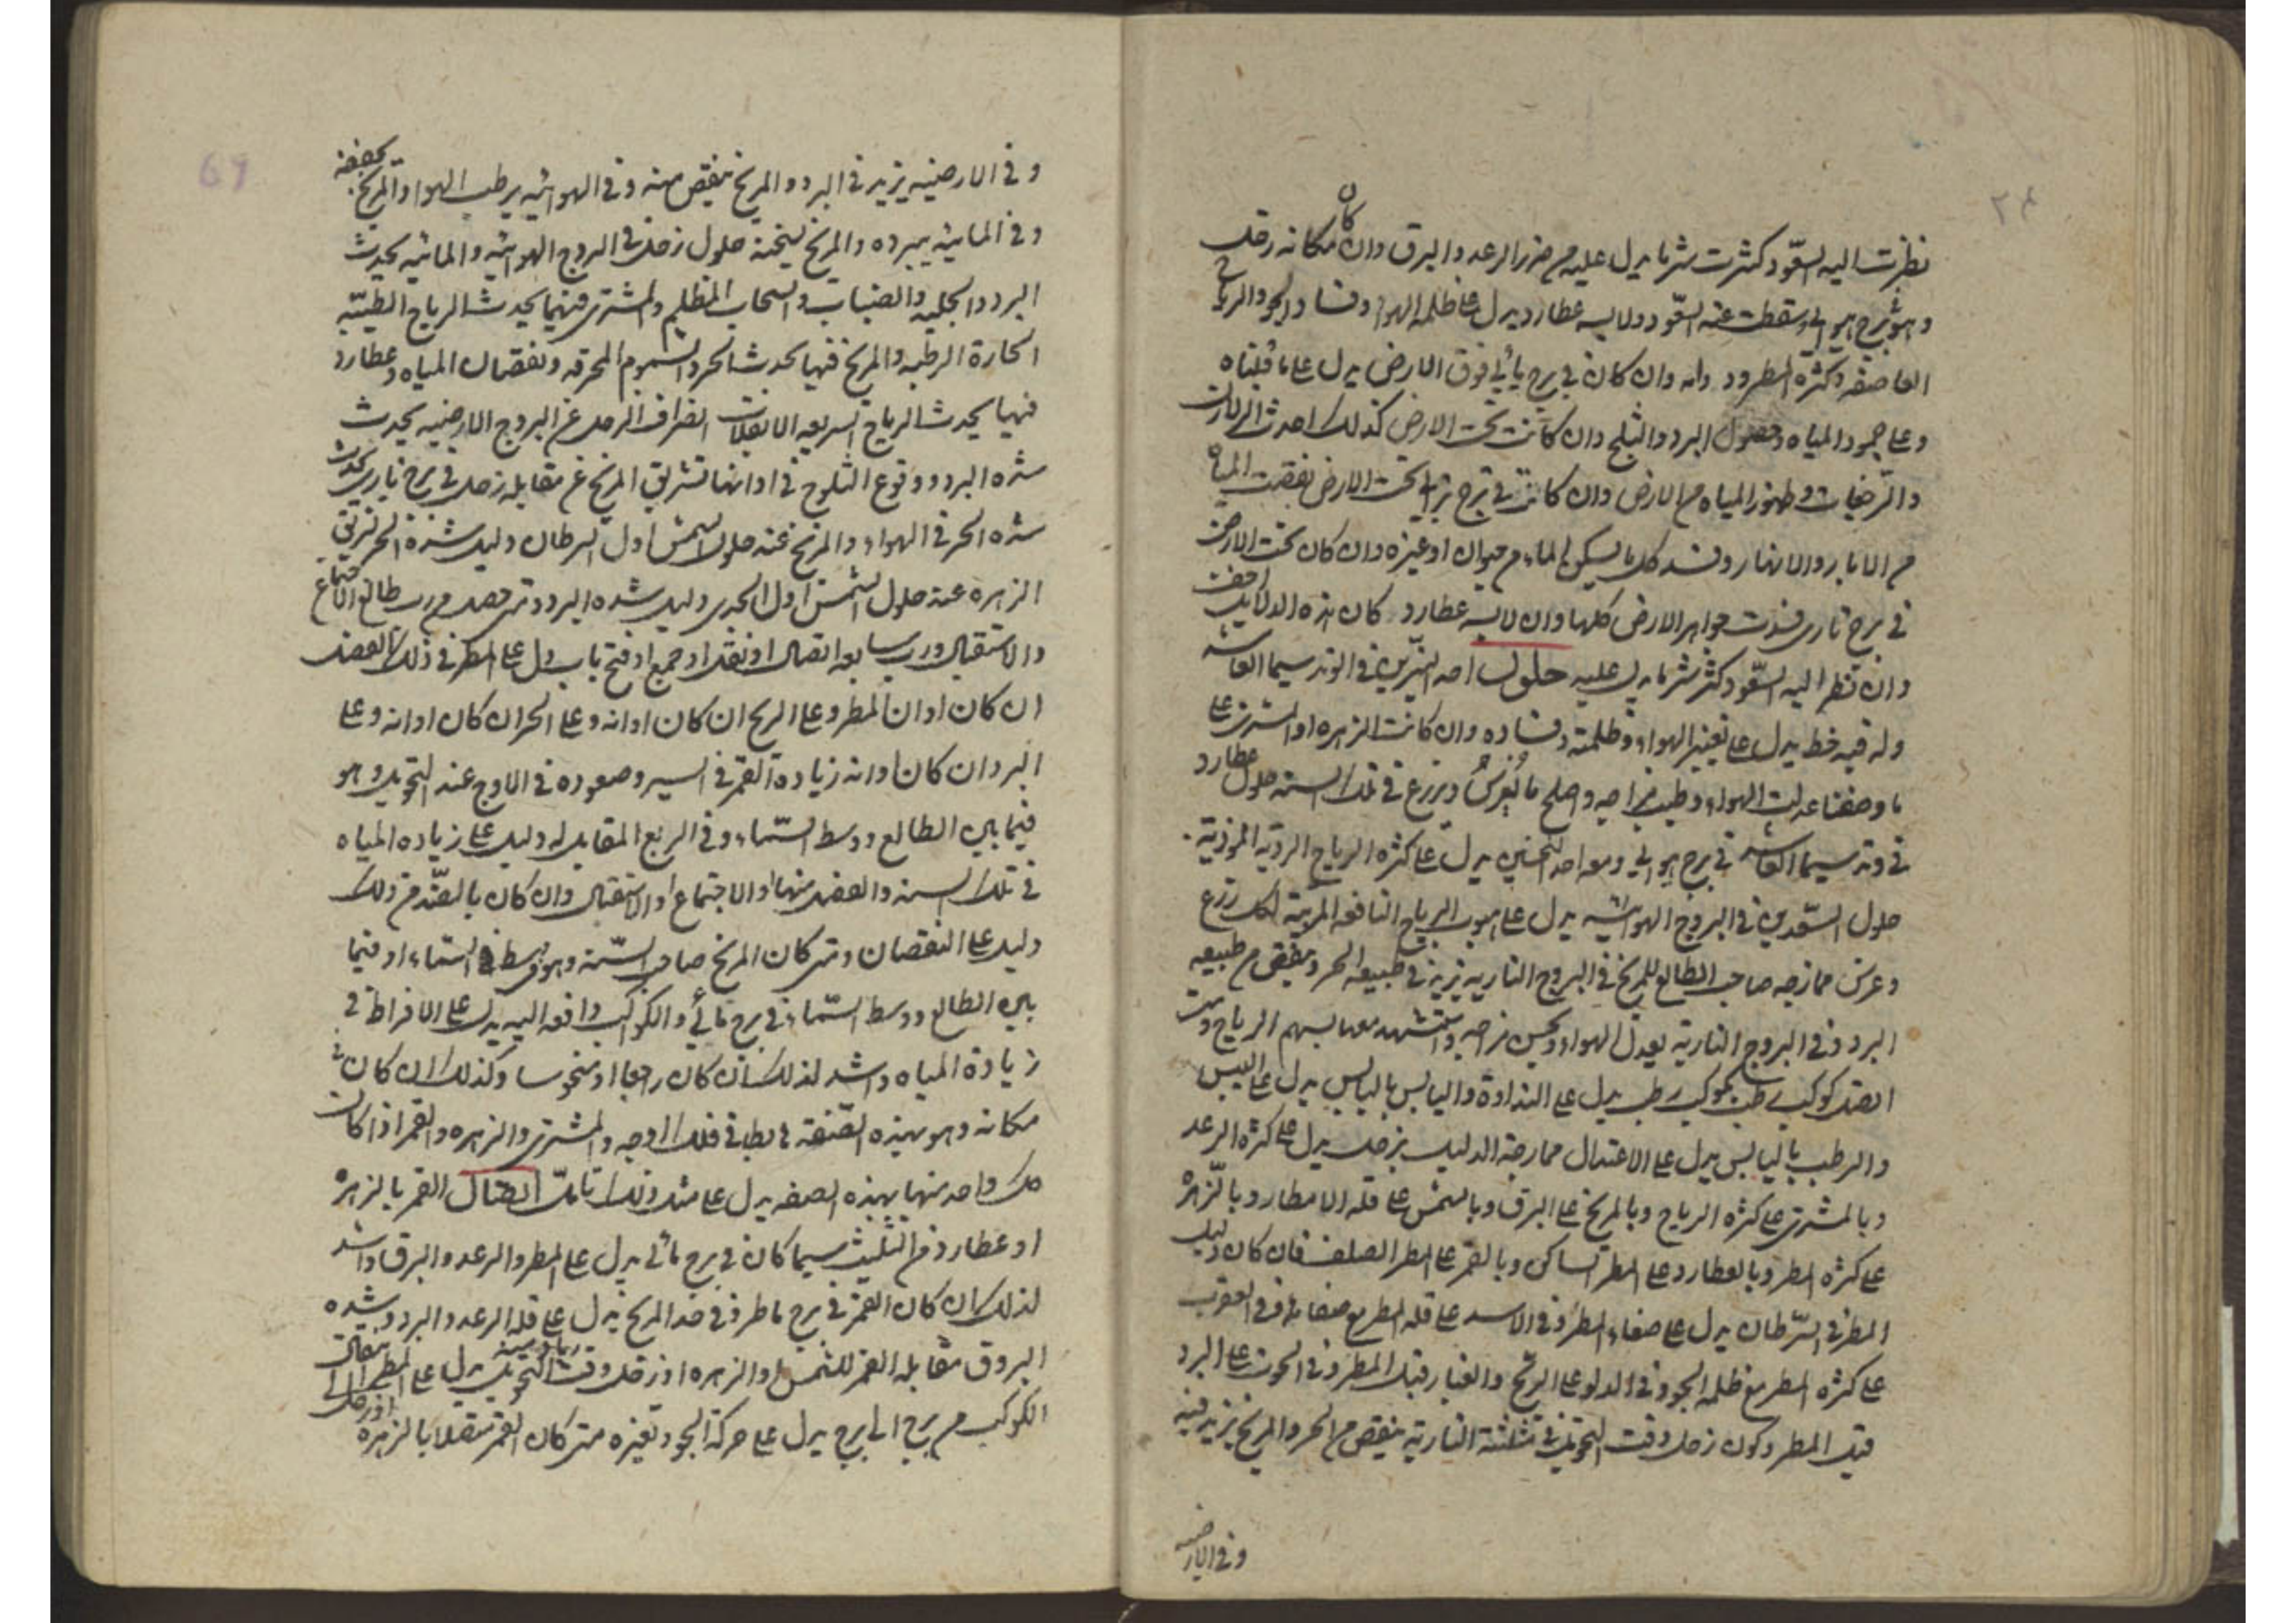 نظرت اليه السعود كثرت شر ما يدل عليه من ضرر الرعد والبرق وان كان مكانه زحل
وهو في برج هوائي وسقطت عنه السعود ولابسه عطارد يدل على ظلمه الهواء وفساد الجو والرياح
العاصفه وكثره المطر ود وان كان في برج مائي فوق الارض يدل على ما قلناه
وعلى جمود المياه وحصول البرد والثلج وان كانت تحت الارض كذلك احدث الزلازل
والرجفات وظهور المياه من الارض وان كانت في برج ترابي تحت الارض نقصت المياه
من الابار والانهار وفسد كل ما يسكن الماء من حيوان او غيره وان كان تحت الارض
في برج ناري فسدت جواهر الارض كلها وان لابسه عطارد كان هذه الدلايل اخفت
وان نظر اليه السعود كثر شر ما يدل عليه حلول احد النيرين في الوتد سيما العاشر
وله فيه حظ يدل على تغيير الهواء وظلمته وفساده وان كانت الزهره او المشتري على
ما وصفنا عدلت الهواء وطيب مزاجه واصلح ما يغرس ويزرع في تلك السنه حلول عطارد
في وتد سيما العاشر في برج هوائي ومعه احد النحسين يدل على كثره الرياح الرديه الموذية
حلول السعدين في البروج الهوائيه يدل على هبوب الرياح النافعه المربية لكل زرع
وغرس ممازجه صاحب الطالع للمريخ في البروج الناريه يزيد في طبيعه الحر وينقص من طبيعه
البرد وفي البروج النارية يعدل الهواء ويحسن مزاجه واستشهد معها بسهم الرياح ومتى
اتصل كوكب رطب بكوكب رطب يدل على النداوة واليابس باليابس يدل على اليبس
والرطب باليابس يدل على الاعتدال ممازجة الدليل بزحل يدل على كثره الرعد
وبالمشتري على كثره الرياح وبالمريخ على البرق وبالشمس على قله الامطار وبالزهره
على كثره المطر وبالعطارد على المطر الساكن وبالقمر على المطر الصلف فان كان دليل
المطر في السرطان يدل على صفاء المطر وفي الاسد على قله المطر مع صفائه وفي العقرب
على كثره المطر مع ظلمه الجو وفي الدلو على الريح والغبار قبل المطر وفي الحوت على البرد
قبل المطر وكون زحل وقت التحويل في مثلثة النارية ينقص من الحر والمريخ يزيد فيه
وفي الارضيه
وفي الارضيه يزيد في البرد والمريخ ينقص منه وفي الهوائيه يرطب الهواء والمريخ يجففه
وفي المائيه يبرده والمريخ يسخنه حلول زحل في البروج الهوائيه والمائيه يحدث
البرد والجليد والضباب والسحاب المظلم والمشتري فيهما يحدث الرياح الطيبه
الحارة الرطبه والمريخ فيها يحدث الحر والسموم المحرقه ونقصان المياه وعطارد
فيها يحدث الرياح السريعه الانقلاب انصراف الزحل عن البروج الارضيه يحدث
شده البرد ووقوع الثلوج في اوانها تشريق المريخ عن مقابله زحل في برج ناري يحدث
شده الحر في الهواء والمريخ عند حلول الشمس اول السرطان دليل شدة الحر تشريق
الزهره عند حلول الشمس اول الجدي دليل شده البرد ومتى حصل من رب طالع الاجتماع
والاستقبال ورب سابعه اتصال او نقل او جمع او فتح باب دل على المطر في ذلك الفصل
ان كان اوان المطر وعلى الريح ان كان اوانه وعلى الحر ان كان اوانه وعلى
البرد ان كان اوانه زيادة القمر في السير وصعوده في الاوج عند التحويل وهو
فيما بين الطالع ووسط السماء وفي الربع المقابل له دليل على زياده المياه
في تلك السنه والفصل منها او الاجتماع او الاستقبال وان كان بالضد من ذلك
دليل على النقصان ومتى كان المريخ صاحب السنه وهو في وسط السماء او فيما
بين الطالع ووسط السماء في برج مائي والكواكب دافعه اليه يدل على الافراط في
زيادة المياه واشد لذلك ان كان راجعا او منحوسا وكذلك ان كان في
مكانه وهو بهذه الصفه هابطا في فلك اوجه والمشتري والزهره والقمر اذا كانت
كل واحد منها بهذه الصفه يدل على مثل ذلك تامل اتصال القمر بالزهره
او عطارد من التثليث سيما كان في برج مائي يدل على المطر والرعد والبرق واشد
لذلك ان كان القمر في برج ماطر وفي حد المريخ يدل على قله الرعد والبرد وشده
البروق مقابله القمر للشمس او الزهره او زحل وقت التحويل يدل على المطر انتقال
الكوكب من برج الى برج يدل على حركة الجو وتغيره متى كان القمر متصلا بالزهره او زحل